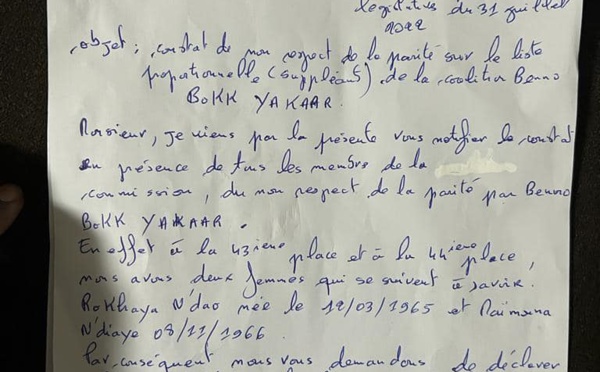 legislatives du 31 juillet
2022
objet : constat de non respect de la parité sur la liste
proportionnelle (suppléants) de la coalition Benno
BOKK YAKAAR.
Monsieur, je viens par la présente vous notifier le constat
en présence de tous les membre de la
commission, du non respect de la parité par Benno
BOKK YAKAAR.
En effet à la 43ieme place et à la 44ieme place,
nous avons deux femmes qui se suivent à savoir.
Rokhaya N'dao née le 12/03/1965 et Maïmouna
N'diaye 08/11/1966.
Par conséquent nous vous demandons de déclarer